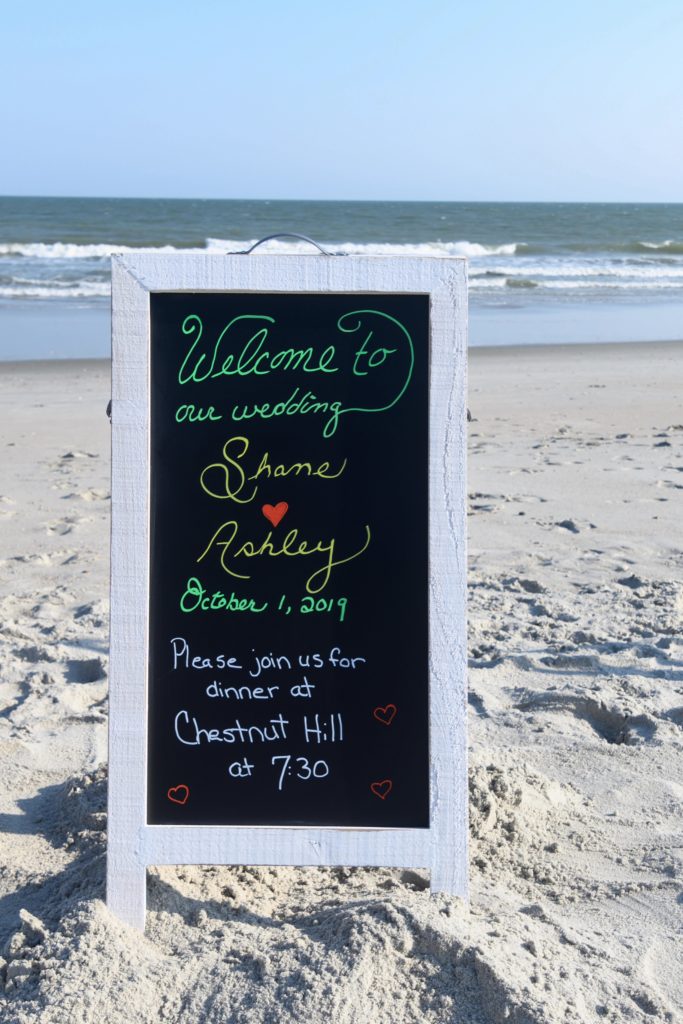 Welcome to
our wedding
Shane
Ashley
October 1, 2019
Please join us for
dinner at
Chestnut Hill
at 7:30